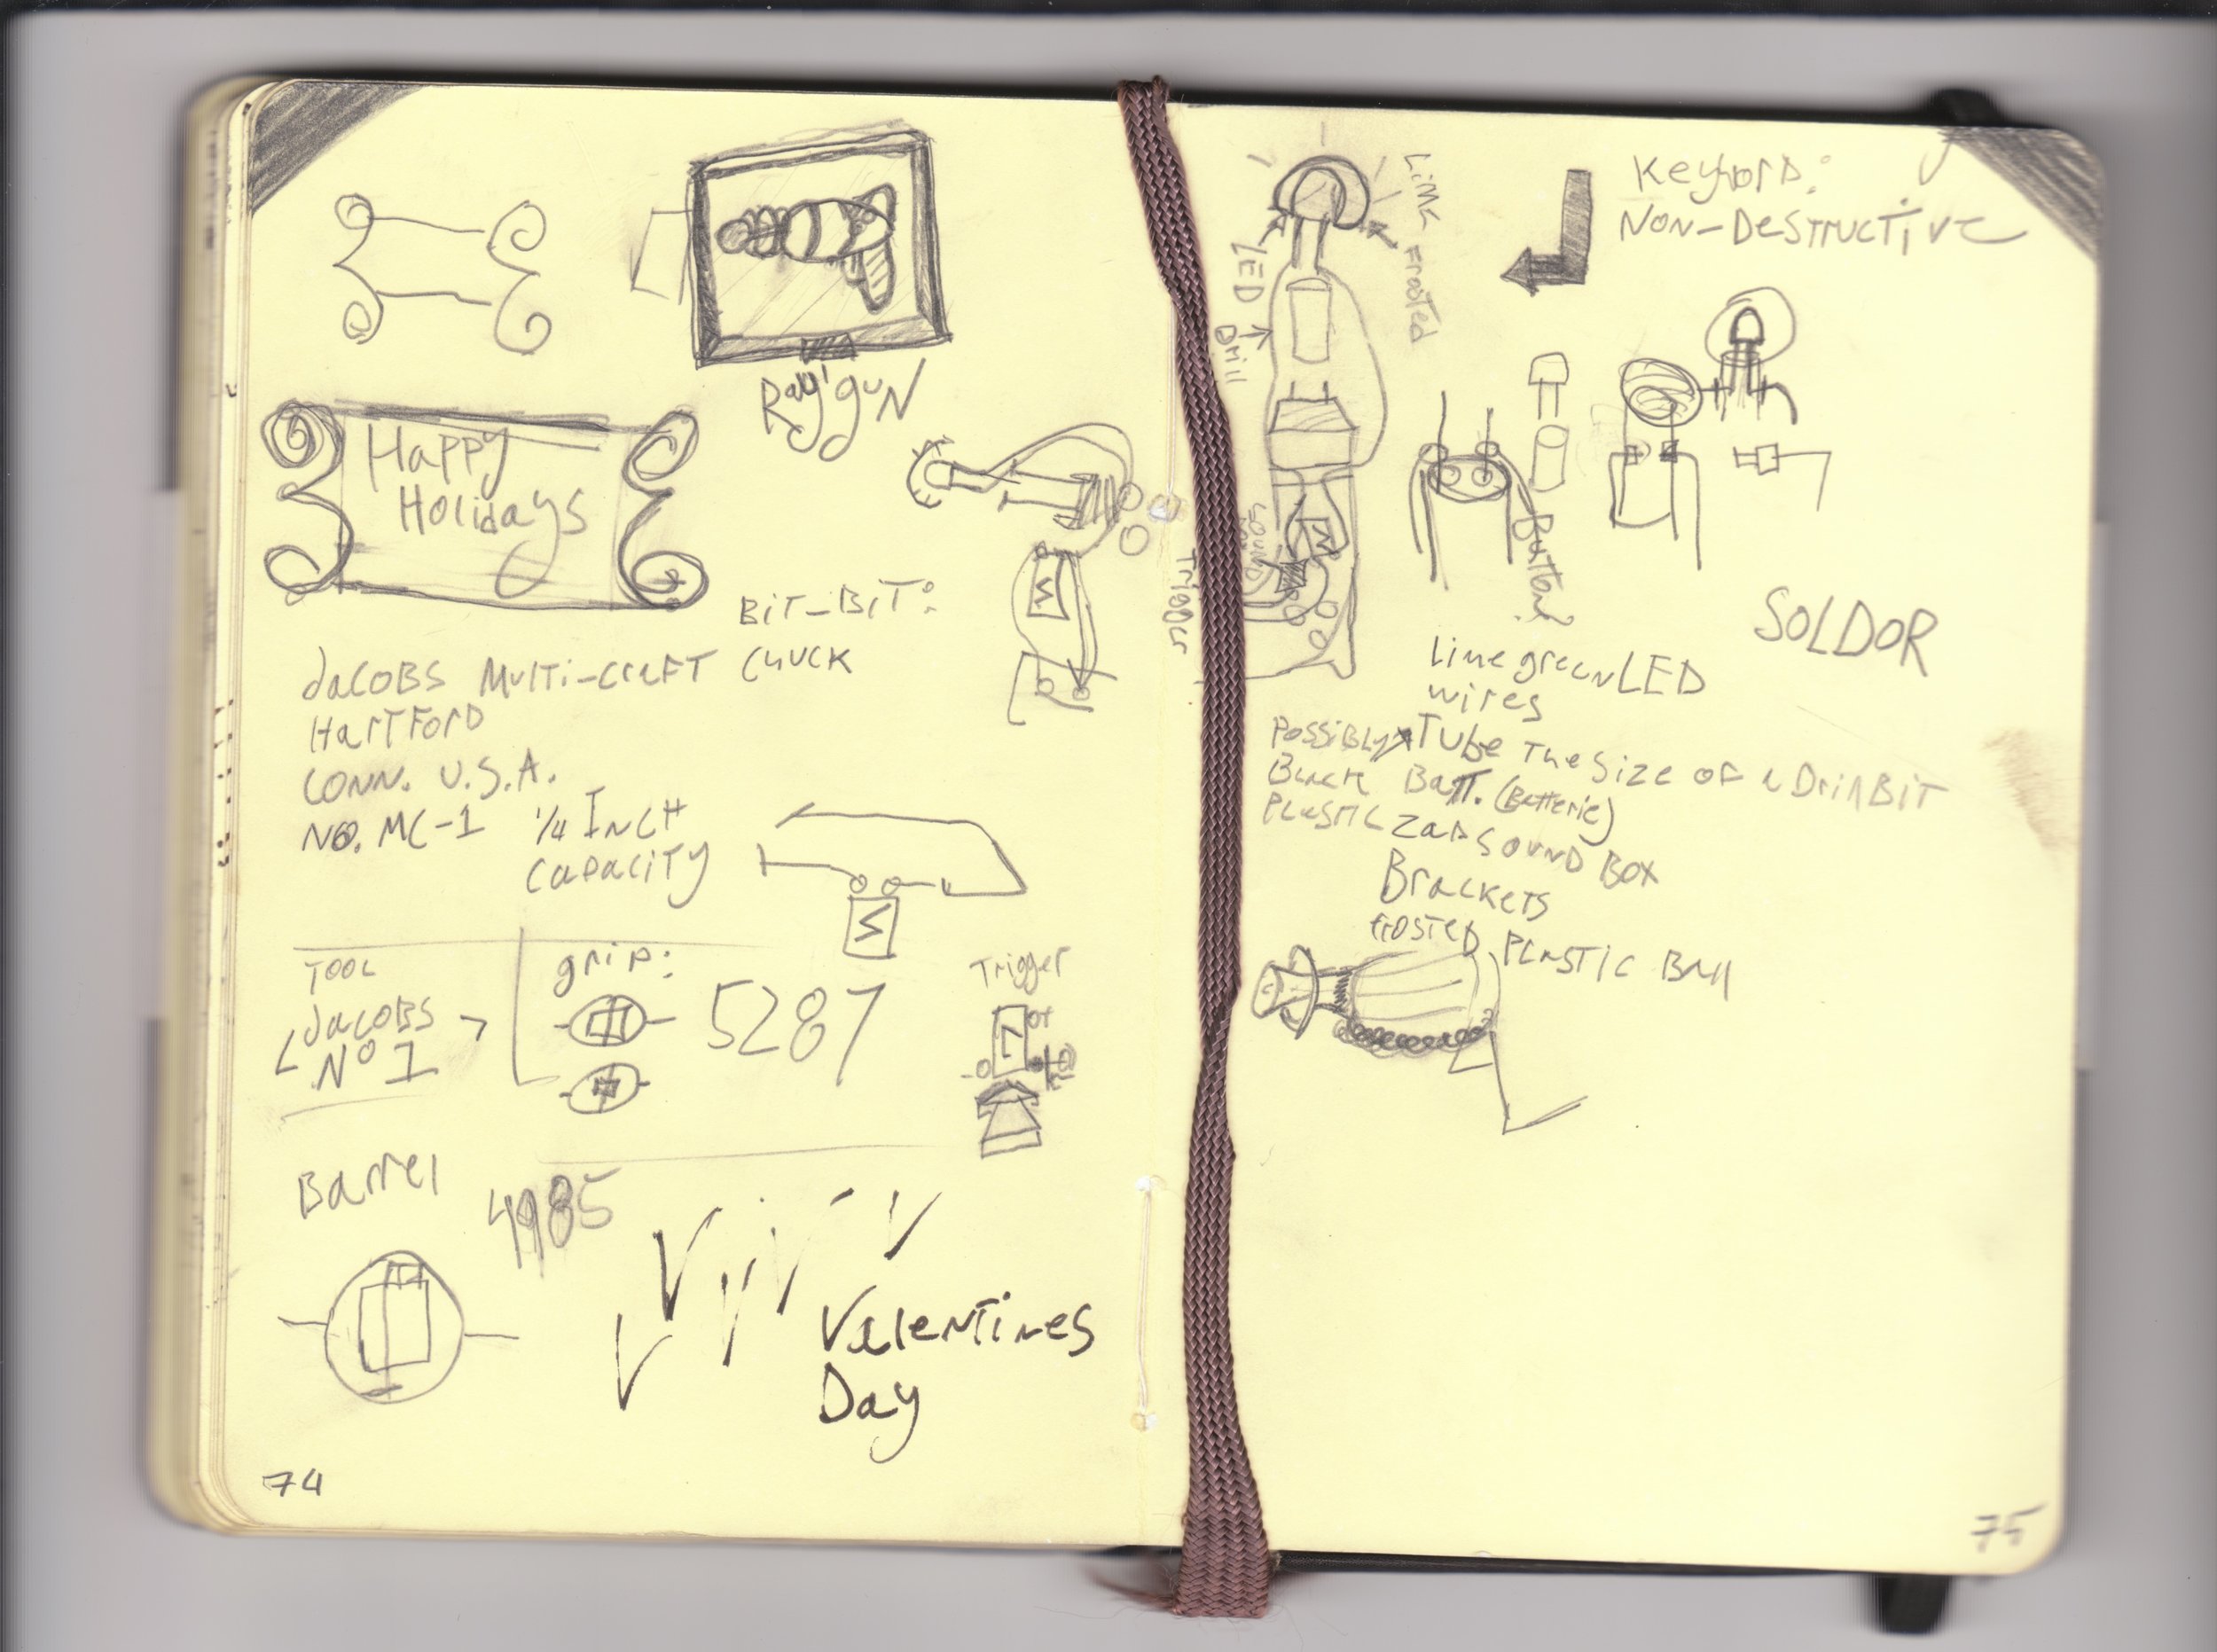 Ray'gun
Happy
Holidays
BiT-BiT:
Jacobs Multi-craft Chuck
Hartford
Conn. U.S.A.
No. MC-1 1/4 Inch
Capacity
Tool
Jacobs
Nº 1
grip:
5287
Trigger
Barrel
4985
Valentines
Day
74
Keyword:
Non-Destructive
Lime
Frosted
LED
Drill
Sound
Trigger
Button
SOLDOR
Lime green LED
wires
Possibly Tube The Size of a Drill Bit
Black Batt. (Batterie)
Plastic Zap Sound Box
Brackets
Frosted Plastic Ball
75